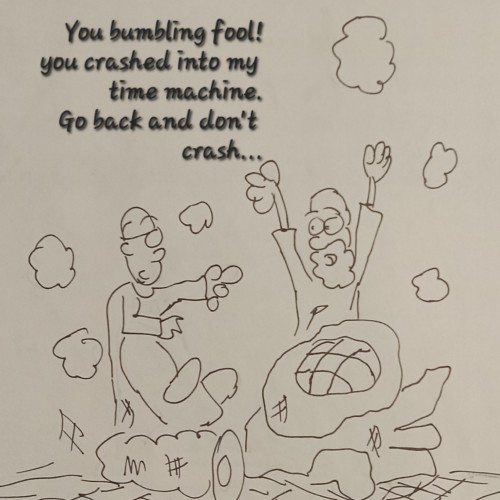 You bumbling fool!
you crashed into my
time machine.
Go back and don't
crash...